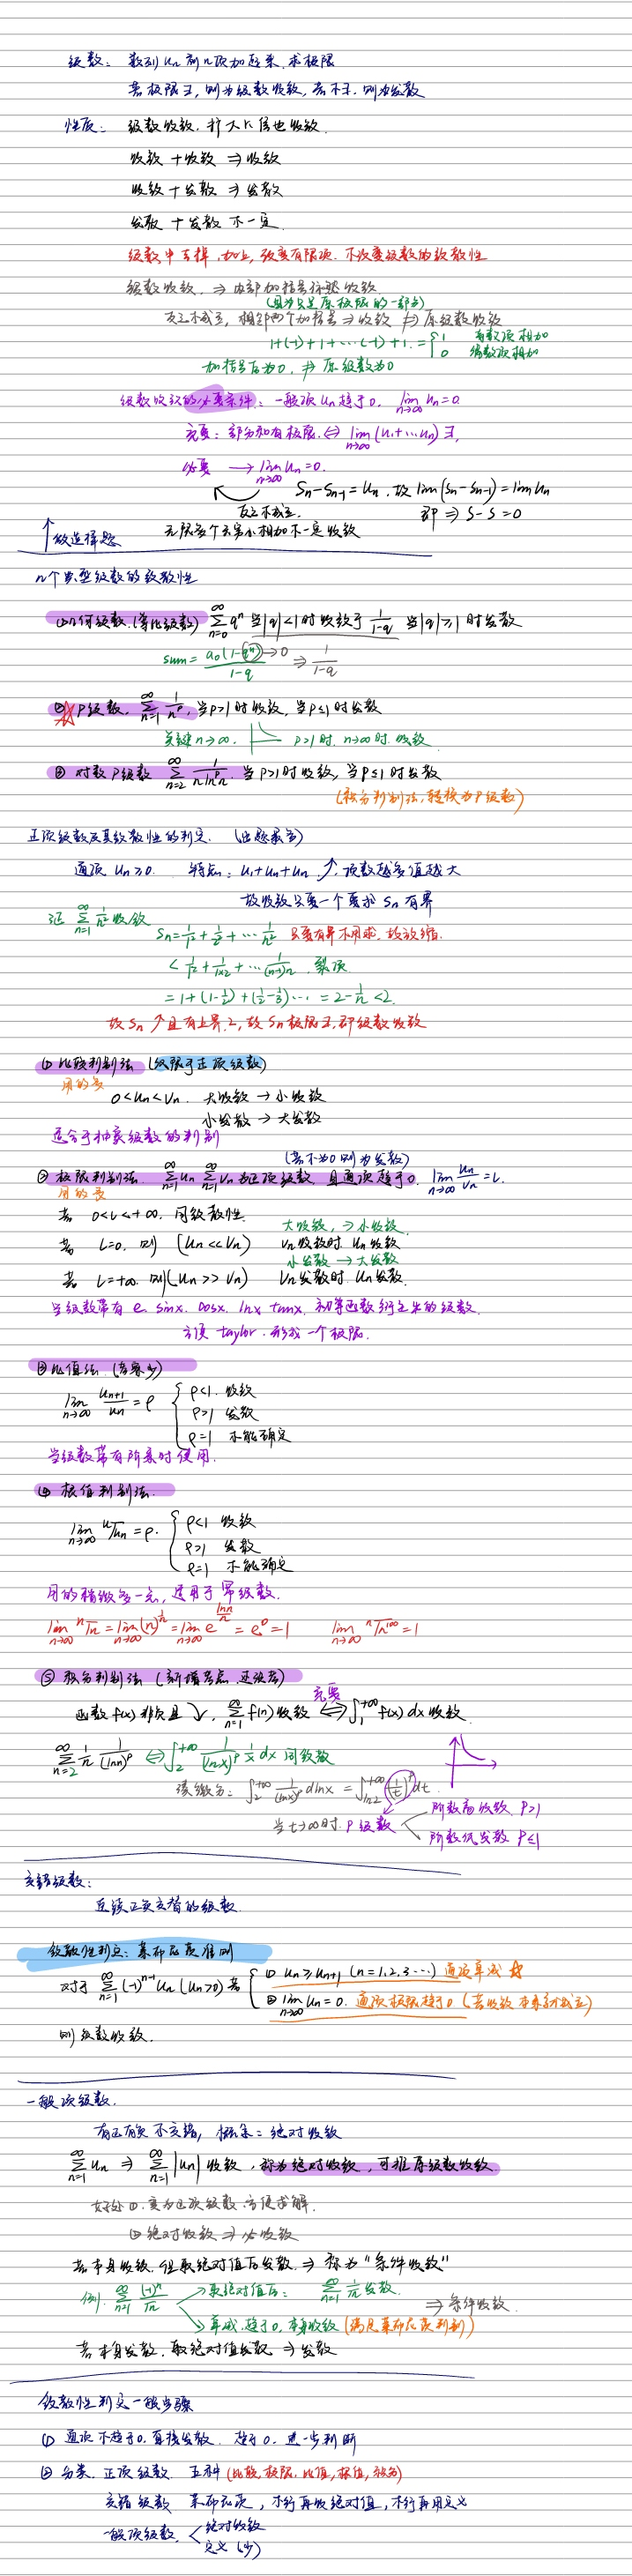 级数: 数列 un 前n项加起来, 求极限
若极限∃, 则为级数收敛, 若不∃, 则为发散
性质: 级数收敛, 扩大k倍也收敛.
收敛 + 收敛 ⇒ 收敛
收敛 + 发散 ⇒ 发散
发散 + 发散 不一定.
级数中去掉, 加上, 改变有限项, 不改变级数的敛散性
级数收敛, ⇒ 内部加括号后级收敛.
(因为只是原极限的一部分)
反之不成立, 相邻两个加括号 ⇒ 收敛 ⇏ 原级数收敛
1+(-1)+1+…(-1)+1. = { 1 奇数项相加
0 偶数项相加
加括号后为0, ⇏ 原级数为0
级数收敛的必要条件: 一般项 un 趋于0, lim n→∞ un = 0
充要: 部分和有极限 ⇔ lim n→∞ (u1+…un) ∃,
必要 → lim n→∞ un = 0.
反之不成立.
Sn - Sn-1 = un, 故 lim (Sn - Sn-1) = lim un
即 ⇒ S - S = 0
无限多个无穷小相加不一定收敛
↑ 做选择题
n个典型级数的敛散性
①几何级数 (等比级数) ∑ n=0 ∞ q^n 当|q|<1时收敛于 1/(1-q) 当|q|≥1时发散
sum = a0(1-q^n)/(1-q) →0 ⇒ 1/(1-q)
② P级数, ∑ n=1 ∞ 1/n^p, 当p>1时收敛, 当p≤1时发散
关键 n→∞. p>1时, n→∞时, 收敛
③ 对数P级数 ∑ n=2 ∞ 1/(n ln^p n) 当p>1时收敛, 当p≤1时发散
(积分判别法, 转换为P级数)
正项级数及其敛散性的判定. (出题最多)
通项 un ≥ 0. 特点: u1+un+un ↗, 项数越多值越大
故收敛只要一个要求 Sn 有界
证 ∑ n=1 ∞ 1/n² 收敛
Sn = 1/1² + 1/2² + … 1/n² 只要有界不用求, 故放缩.
< 1/1² + 1/1×2 + … 1/(n-1)n 裂项
= 1+(1-1/2)+(1/2-1/3)… = 2-1/n <2.
故 Sn ↗ 且有上界2, 故 Sn 极限∃, 即级数收敛
① 比较判别法 (仅限于正项级数)
用的多
0<un<vn. 大收敛 → 小收敛
小发散 → 大发散
适合于抽象级数的判别
(若不为0则为发散)
② 极限判别法. ∑ n=1 ∞ un ∑ n=1 ∞ vn 为正项级数 且通项趋于0. lim n→∞ un/vn = L.
用的多
若 0<L<+∞. 同敛散性.
大收敛, → 小收敛.
若 L=0. 则 (un << vn) vn收敛时 un收敛
小发散 → 大发散
若 L=+∞ 则 (un >> vn) vn发散时 un发散.
当级数带有 e. sinx. cosx. lnx tanx. 初等函数衍生出的级数.
方便 taylor. 形成一个极限.
③比值法 (考察少)
lim n→∞ un+1/un = ρ { ρ<1. 收敛
ρ>1 发散
ρ=1 不能确定
当级数带有阶乘时使用.
④ 根值判别法.
lim n→∞ ⁿ√un = ρ. { ρ<1 收敛
ρ>1 发散
ρ=1 不能确定
用的稍微多一点, 适用于幂级数.
lim n→∞ ⁿ√n = lim n→∞ (n)^(1/n) = lim n→∞ e^(lnn/n) = e^0 = 1 lim n→∞ ⁿ√n^100 = 1
⑤ 积分判别法 (新增考点, 还没考)
函数 f(x) 非负且 ↘, ∑ n=1 ∞ f(n) 收敛 充要 ⇔ ∫ 1 +∞ f(x) dx 收敛.
∑ n=2 ∞ 1/n 1/(lnn)^p ⇔ ∫ 2 +∞ 1/(lnx)^p 1/x dx 同敛散
凑微分: ∫ 2 +∞ 1/(lnx)^p dlnx = ∫ ln2 +∞ (1/t)^p dt.
当t→∞时. P级数 阶数高收敛 P>1
阶数低发散 P≤1
交错级数:
连续正负交替的级数.
敛散性判定: 莱布尼茨准则
对于 ∑ n=1 ∞ (-1)^(n-1) un (un>0) 若 { ① un ≥ un+1 (n=1,2,3…) 通项单减 ☆
② lim n→∞ un = 0. 通项极限趋于0
则级数收敛.
一般项级数.
有正有负 不交错, 概念: 绝对收敛
∑ n=1 ∞ un ⇒ ∑ n=1 ∞ |un| 收敛, 称为绝对收敛, 可推原级数收敛.
好处 ①. 变为正项级数 方便求解.
② 绝对收敛 ⇒ 必收敛
若本身收敛, 但取绝对值后发散. ⇒ 称为 "条件收敛"
例. ∑ n=1 ∞ (-1)^n/√n → 取绝对值后: ∑ n=1 ∞ 1/√n 发散. ⇒ 条件收敛.
→ 单减, 趋于0, 本身收敛 (满足莱布尼茨判别)
若本身发散, 取绝对值发散 ⇒ 发散
敛散性判定一般步骤
① 通项不趋于0, 直接发散. 趋于0, 进一步判断
② 分类. 正项级数. 五种 (比较, 极限, 比值, 根值, 积分)
交错级数 莱布尼茨, 不行再取绝对值, 不行再用定义
一般项级数. < 绝对收敛
定义 (少)